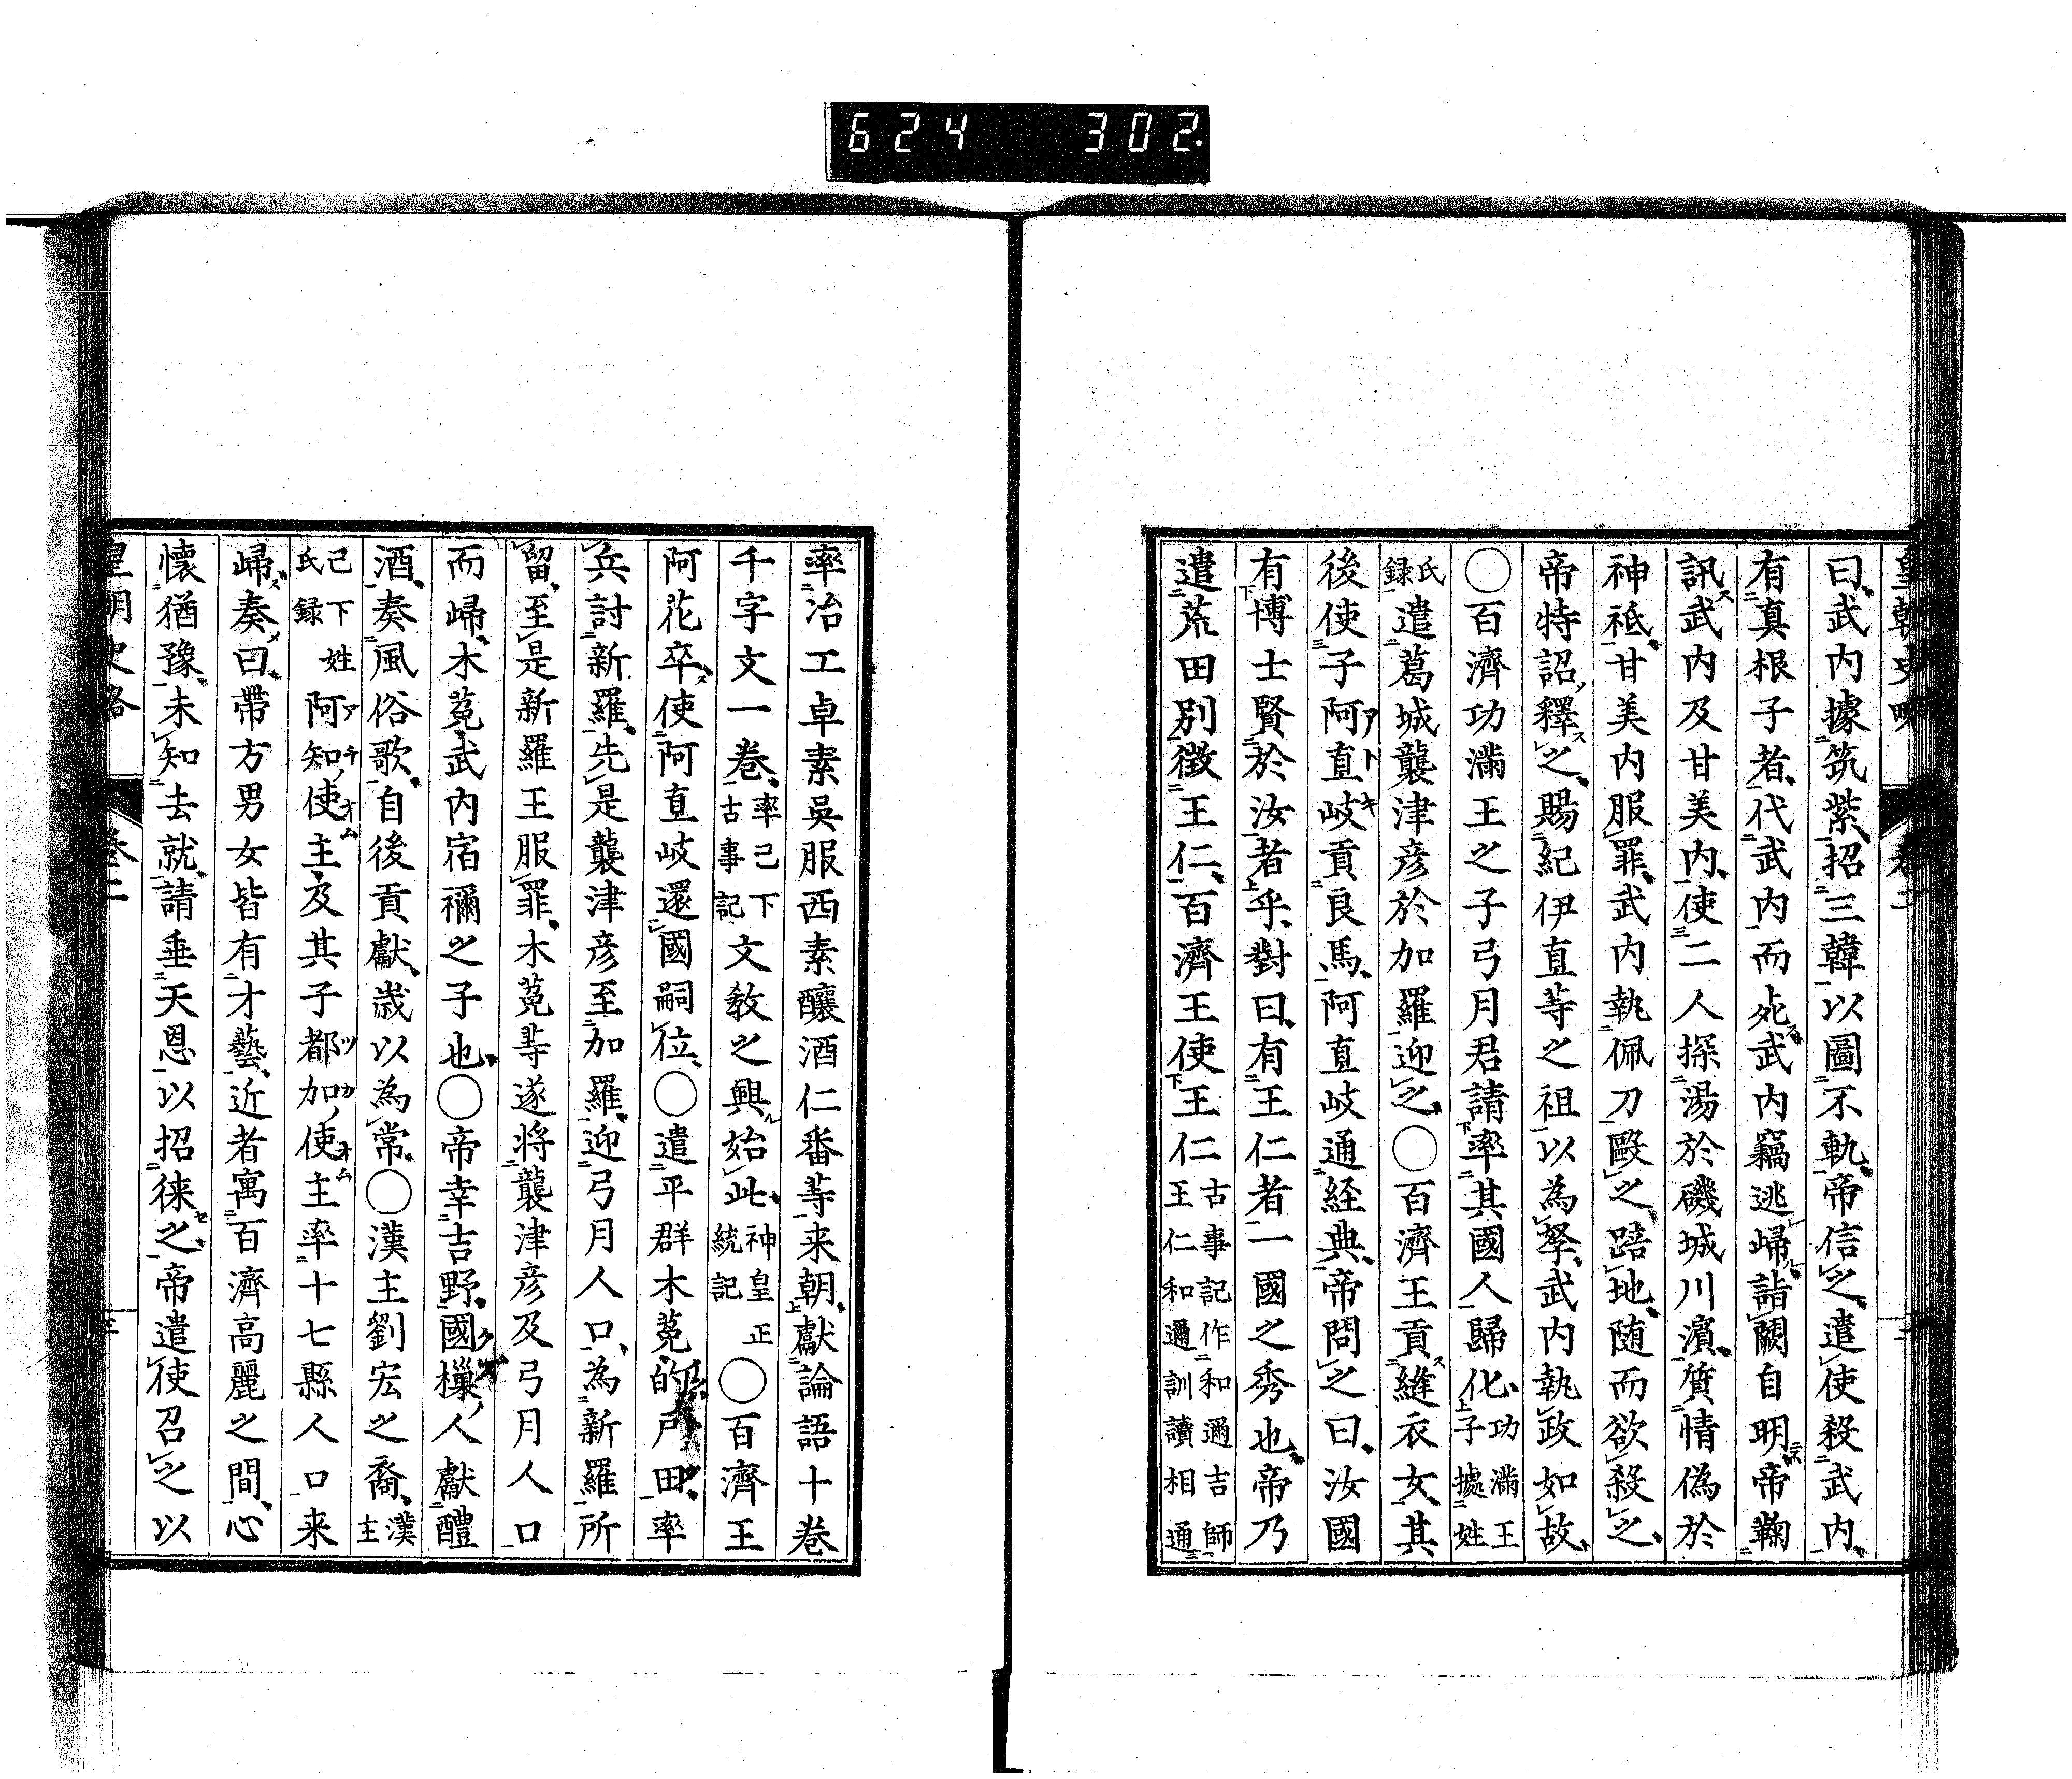 624 302.
皇朝史略 巻二
曰武内據筑紫招三韓以圖不軌帝信之遣使殺武内
有真根子者代武内而死武内竊逃歸詣闕自明帝鞠
訊武内及甘美内使二人探湯於磯城川濱質情偽於
神祇甘美内服罪武内執佩刀毆之踣地随而欲殺之
帝特詔釋之賜紀伊直等之祖以為孥武内執政如故
○百濟功滿王之子弓月君請率其國人歸化功滿王子據姓
氏録遣葛城襲津彦於加羅迎之○百濟王貢縫衣女其
後使子阿直岐貢良馬阿直岐通経典帝問之曰汝國
有博士賢於汝者乎對曰有王仁者一國之秀也帝乃
遣荒田別徵王仁百濟王使王仁古事記作和邇吉師王仁和邇訓讀相通
率冶工卓素呉服西素釀酒仁番等来朝獻論語十巻
千字文一巻率已下古事記文教之興始此神皇正統記○百濟王
阿花卒使阿直岐還國嗣位○遣平群木莵的戸田率
兵討新羅先是襲津彦至加羅迎弓月人口為新羅所
留至是新羅王服罪木莵等遂将襲津彦及弓月人口
而歸木莵武内宿禰之子也○帝幸吉野國樔人獻醴
酒奏風俗歌自後貢獻歳以為常○漢主劉宏之裔漢主
已下姓氏録阿知使主及其子都加使主率十七縣人口来
歸奏曰帶方男女皆有才藝近者寓百濟高麗之間心
懷猶豫未知去就請垂天恩以招徠之帝遣使召之以
皇朝史略 巻二